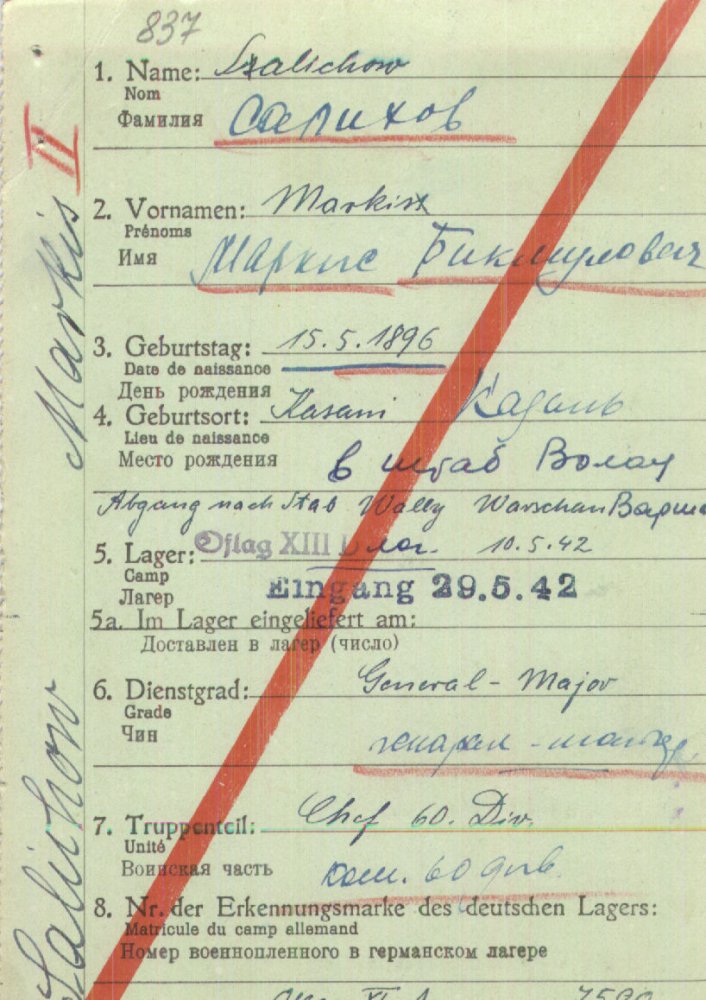 837
1. Name: Szalichow
Nom
Фамилия Салихов
2. Vornamen: Markis
Prénoms
Имя Маркис Бикмулович
3. Geburtstag: 15.5.1896
Date de naissance
День рождения
4. Geburtsort: Kasani Казань
Lieu de naissance
Место рождения в штаб
Abgang nach Stab Wally Warschau
5. Lager: Oflag XIII лаг. 10.5.42
Camp
Лагерь Eingang 29.5.42
5a. Im Lager eingeliefert am:
Доставлен в лагер (число)
6. Dienstgrad: General-Major
Grade
Чин
7. Truppenteil: Chef 60. Div.
Unité
Воинская часть ком. 60 див.
8. Nr. der Erkennungsmarke des deutschen Lagers:
Matricule du camp allemand
Номер военнопленного в германском лагере
Salichow Markis II